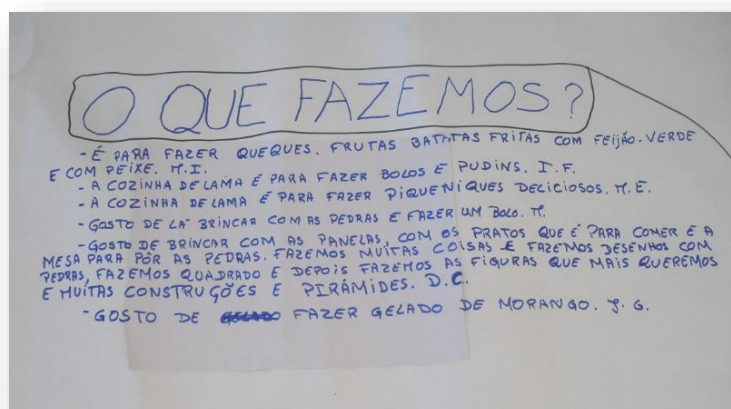 O QUE FAZEMOS?
- É PARA FAZER QUEQUES. FRUTAS BATATAS FRITAS COM FEIJÃO-VERDE
E COM PEIXE. M.I.
- A COZINHA DE LAMA É PARA FAZER BOLOS E PUDINS. I.F.
- A COZINHA DE LAMA É PARA FAZER PIQUENIQUES DELICIOSOS. M.E.
- GOSTO DE LÁ BRINCAR COM AS PEDRAS E FAZER UM BOLO. M.
- GOSTO DE BRINCAR COM AS PANELAS, COM OS PRATOS QUE É PARA COMER E A
MESA PARA PÔR AS PEDRAS. FAZEMOS MUITAS COISAS E FAZEMOS DESENHOS COM
PEDRAS, FAZEMOS QUADRADO E DEPOIS FAZEMOS AS FIGURAS QUE MAIS QUEREMOS
E MUITAS CONSTRUÇÕES E PIRÂMIDES. D.C.
- GOSTO DE FAZER GELADO DE MORANGO. J.G.